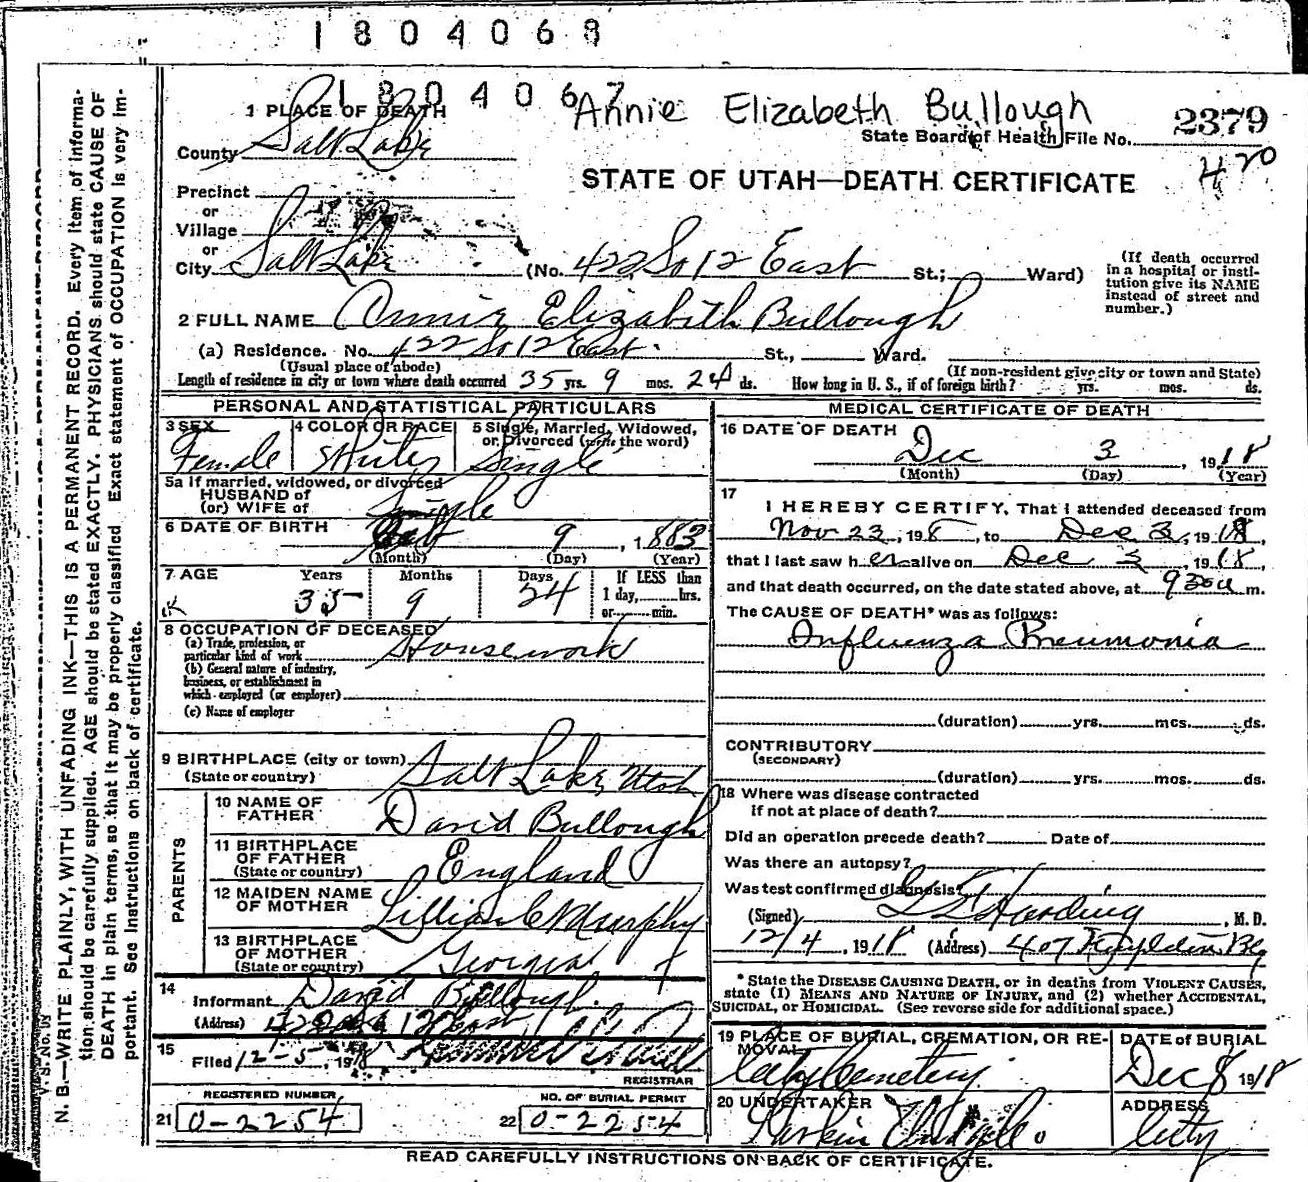 1804068
1804067
Annie Elizabeth Bullough
1 PLACE OF DEATH
State Board of Health File No. 2379
County Salt Lake
420
STATE OF UTAH—DEATH CERTIFICATE
Precinct
or
Village
or
City Salt Lake (No. 422 So 12 East St.; Ward)
(If death occurred in a hospital or institution give its NAME instead of street and number.)
2 FULL NAME Annie Elizabeth Bullough
(a) Residence. No. 422 So 12 East. St., Ward.
(Usual place of abode) (If non-resident give city or town and State)
Length of residence in city or town where death occurred 35 yrs. 9 mos. 24 ds. How long in U. S., if of foreign birth? yrs. mos. ds.
PERSONAL AND STATISTICAL PARTICULARS
3 SEX Female
4 COLOR OR RACE White
5 Single, Married, Widowed, or Divorced (write the word) Single
5a If married, widowed, or divorced
HUSBAND of
(or) WIFE of Single
6 DATE OF BIRTH 9, 1883
(Month) (Day) (Year)
7 AGE Years Months Days If LESS than
35 9 24 1 day, hrs.
or min.
8 OCCUPATION OF DECEASED
(a) Trade, profession, or
particular kind of work Housework
(b) General nature of industry,
business, or establishment in
which employed (or employer)
(c) Name of employer
9 BIRTHPLACE (city or town) Salt Lake, Utah
(State or country)
PARENTS
10 NAME OF
FATHER David Bullough
11 BIRTHPLACE
OF FATHER England
(State or country)
12 MAIDEN NAME
OF MOTHER Lillian C Murphy
13 BIRTHPLACE
OF MOTHER Georgia
(State or country)
14
Informant David Bullough.
(Address) 12 East
15
Filed 12-5, 1918
REGISTRAR
REGISTERED NUMBER
21 0-2254
NO. OF BURIAL PERMIT
22 0-2254
MEDICAL CERTIFICATE OF DEATH
16 DATE OF DEATH
Dec 3, 1918
(Month) (Day) (Year)
17
I HEREBY CERTIFY, That I attended deceased from
Nov 23, 198, to Dec 3, 1918,
that I last saw her alive on Dec 3, 1918,
and that death occurred, on the date stated above, at 930a m.
The CAUSE OF DEATH* was as follows:
Influenza Pneumonia
(duration) yrs. mos. ds.
CONTRIBUTORY
(SECONDARY)
(duration) yrs. mos. ds.
18 Where was disease contracted
if not at place of death?
Did an operation precede death? Date of
Was there an autopsy?
Was test confirmed diagnosis?
(Signed) Harding, M. D.
12/4, 1918 (Address) 407
* State the DISEASE CAUSING DEATH, or in deaths from VIOLENT CAUSES,
state (1) MEANS AND NATURE OF INJURY, and (2) whether ACCIDENTAL,
SUICIDAL, or HOMICIDAL. (See reverse side for additional space.)
19 PLACE OF BURIAL, CREMATION, OR RE-
MOVAL City Cemetery
DATE of BURIAL
Dec 8 1918
20 UNDERTAKER Larkin
ADDRESS
City
READ CAREFULLY INSTRUCTIONS ON BACK OF CERTIFICATE.
V. S. No.
N. B.—WRITE PLAINLY, WITH UNFADING INK—THIS IS A PERMANENT RECORD. Every item of informa-
tion should be carefully supplied. AGE should be stated EXACTLY. PHYSICIANS should state CAUSE OF
DEATH in plain terms, so that it may be properly classified. Exact statement of OCCUPATION is very im-
portant. See instructions on back of certificate.